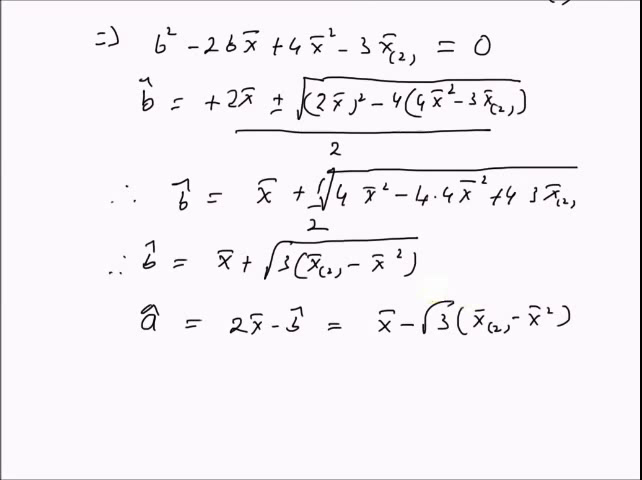 ⇒ b² - 2b x̄ + 4x̄² - 3x̄₍₂₎ = 0
b̂ = + 2x̄ ± √((2x̄)² - 4(4x̄² - 3x̄₍₂₎)) / 2
∴ b̂ = x̄ + ½√(4x̄² - 4·4x̄² + 4 3x̄₍₂₎
∴ b̂ = x̄ + √(3(x̄₍₂₎ - x̄²))
â = 2x̄ - b̂ = x̄ - √3(x̄₍₂₎ - x̄²)